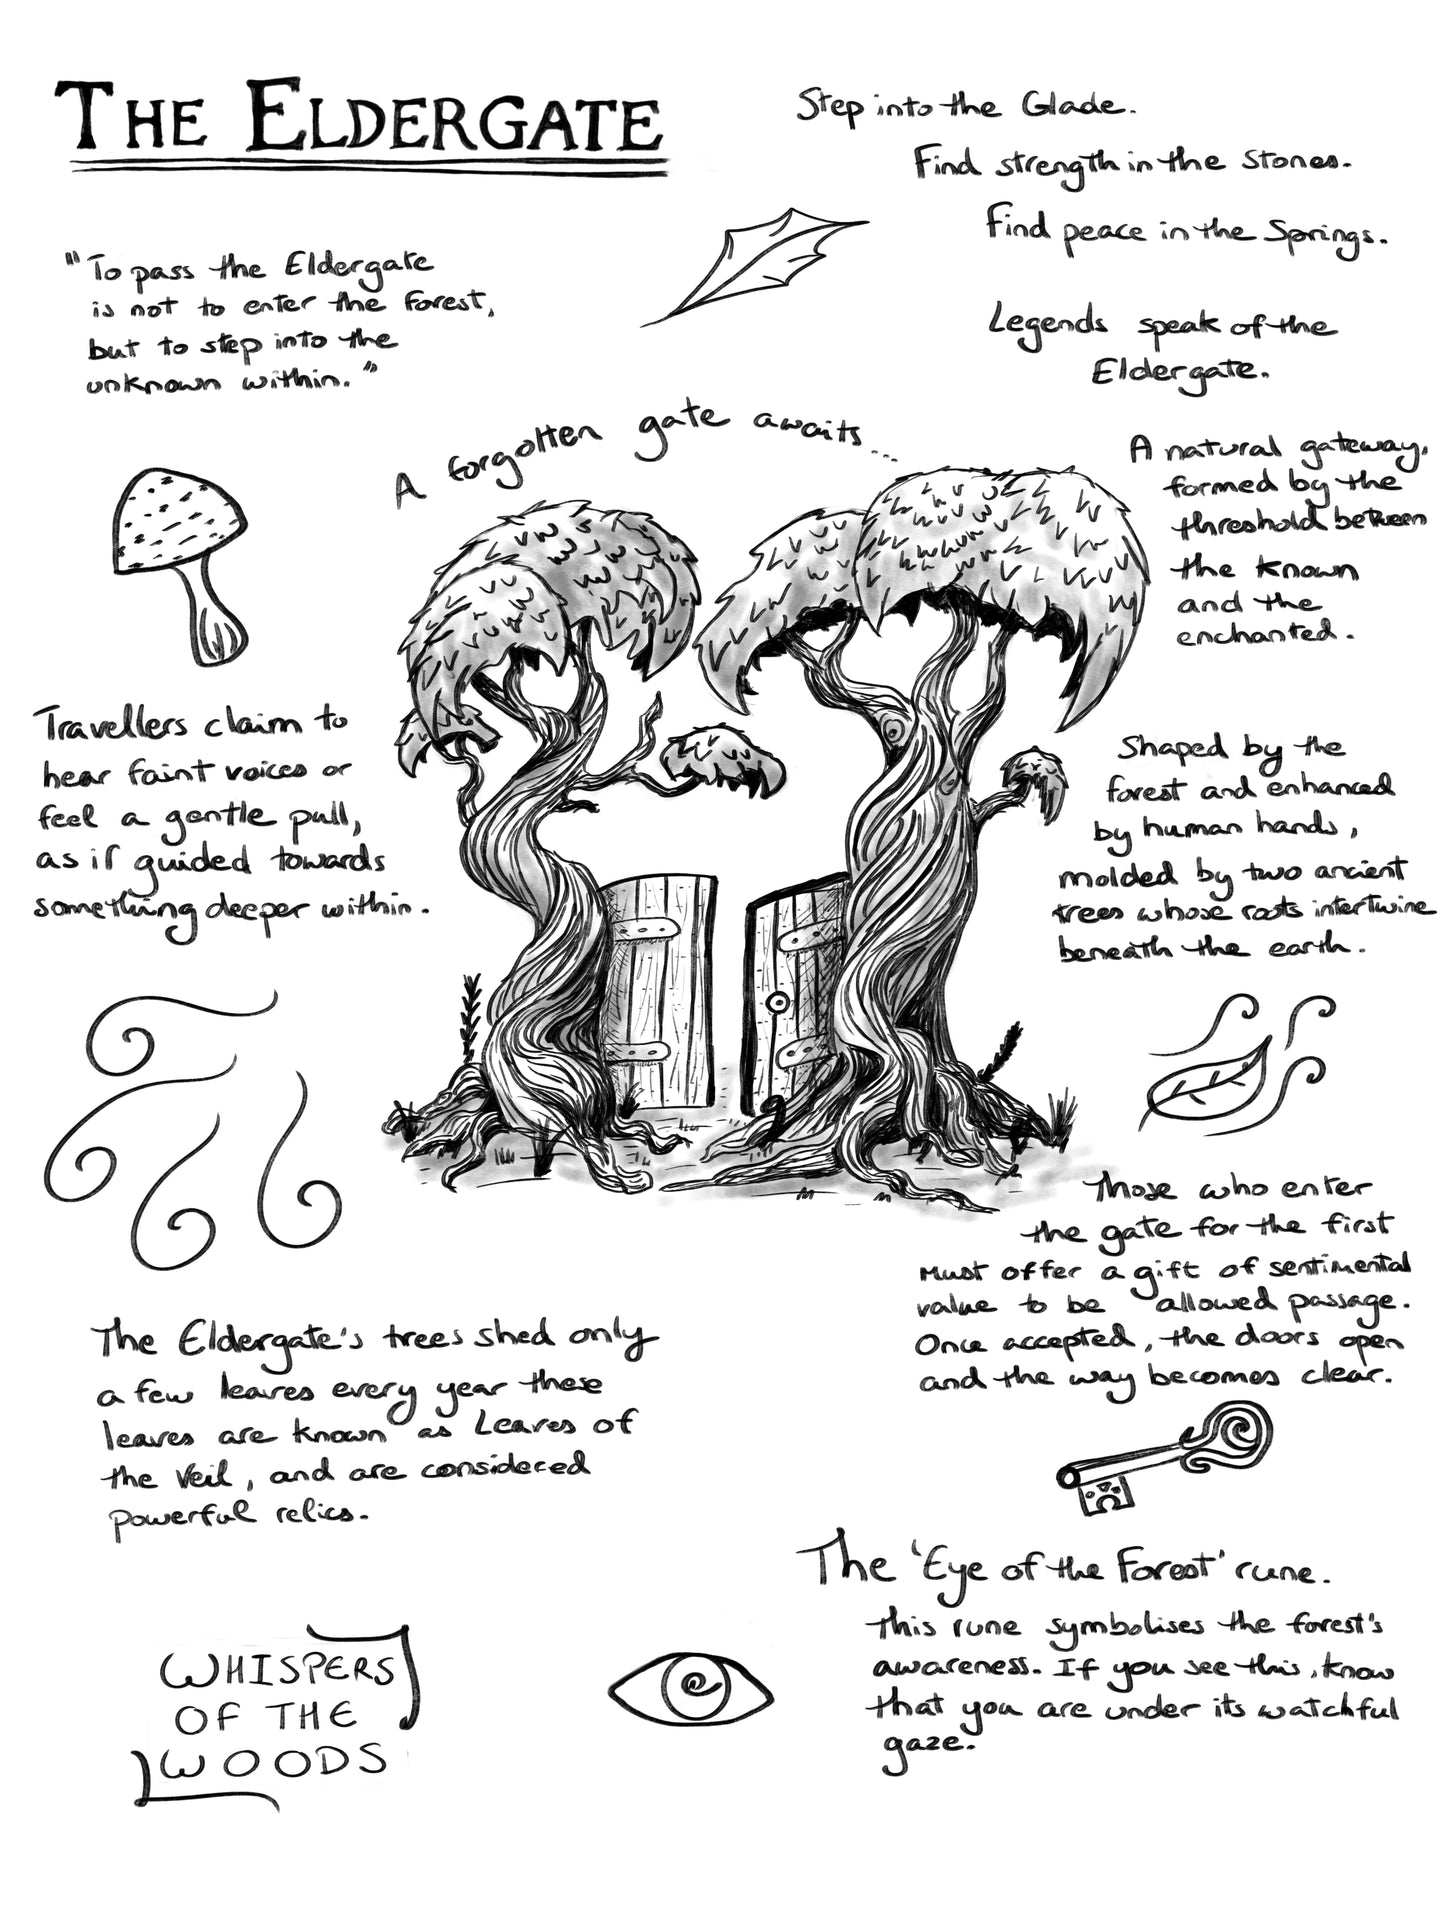 THE ELDERGATE
"To pass the Eldergate
is not to enter the forest,
but to step into the
unknown within."
Step into the Glade.
Find strength in the Stones.
Find peace in the Springs.
Legends speak of the
Eldergate.
A forgotten gate awaits...
A natural gateway,
formed by the
threshold between
the known
and the
enchanted.
Travellers claim to
hear faint voices or
feel a gentle pull,
as if guided towards
something deeper within.
Shaped by the
forest and enhanced
by human hands,
molded by two ancient
trees whose roots intertwine
beneath the earth.
Those who enter
the gate for the first
must offer a gift of sentimental
value to be allowed passage.
Once accepted, the doors open
and the way becomes clear.
The Eldergate's trees shed only
a few leaves every year these
leaves are known as Leaves of
the Veil, and are considered
powerful relics.
The 'Eye of the Forest' rune.
This rune symbolises the forest's
awareness. If you see this, know
that you are under its watchful
gaze.
WHISPERS
OF THE
WOODS